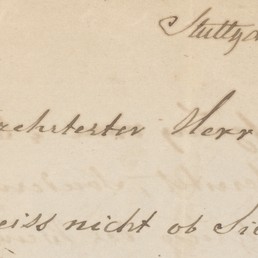 Stuttga
echrtester Herr
eiss nicht ob Sie